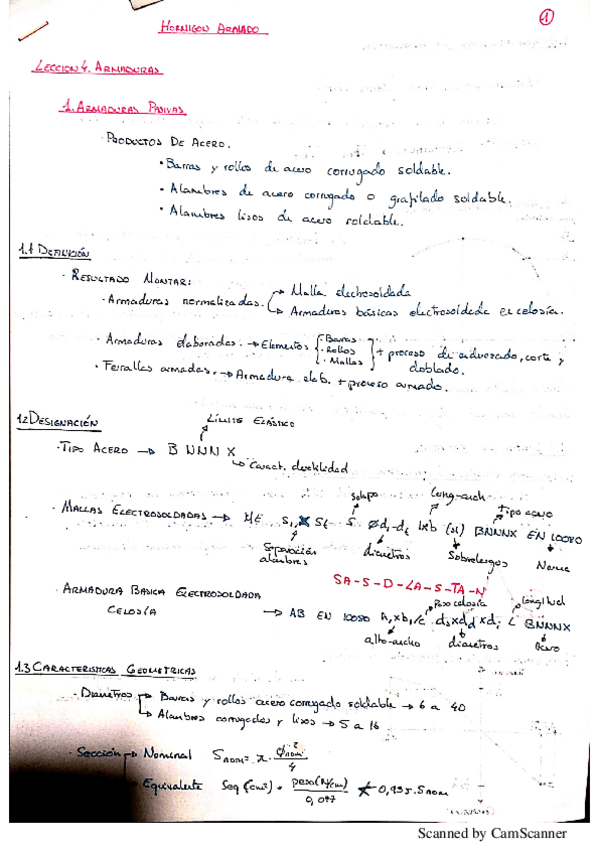 1
HORMIGON ARMADO
LECCION 4. ARMADURAS
1. ARMADURAS PASIVAS
· PRODUCTOS DE ACERO.
• Barras y rollos de acero corrugado soldable.
• Alambres de acero corrugado o grafilado soldable.
• Alambres lisos de acero soldable.
1.1 DEFINICIÓN
· RESULTADO MONTAR:
· Armaduras normalizadas. → Malla electrosoldada
→ Armaduras básicas electrosoldada en celosía.
· Armaduras elaboradas. → Elementos { · Barras · Rollos · Mallas } + proceso de enderezado, corte y doblado.
· Ferrallas armadas. → Armadura elab. + proceso armado.
1.2 DESIGNACIÓN
LÍMITE ELÁSTICO
· TIPO ACERO → B NNN X
→ Caract. ductilidad
solapo long-anch Tipo acero
· MALLAS ELECTROSOLDADAS → ME sl x st S Ødl-dt lxb (sl) BNNNX EN 10080
Separación alambres diametros Sobrelargos Norma
SA-S-D-LA-S-TA-N
· ARMADURA BASICA ELECTROSOLDADA CELOSÍA
Paso celosía longitud
→ AB EN 10080 A, x b, /c ds x dd x di L BNNNX
alto-ancho diametros Acero
1.3 CARACTERISTICAS GEOMETRICAS
· Diametros → Barras y rollos acero corrugado soldable → 6 a 40
→ Alambres corrugados y lisos → 5 a 16
· Sección → Nominal Snom = π · Φnom² / 4
→ Equivalente Seq (cm²) = peso (N/cm) / 0,077 ≮ 0,95 · Snom
Scanned by CamScanner